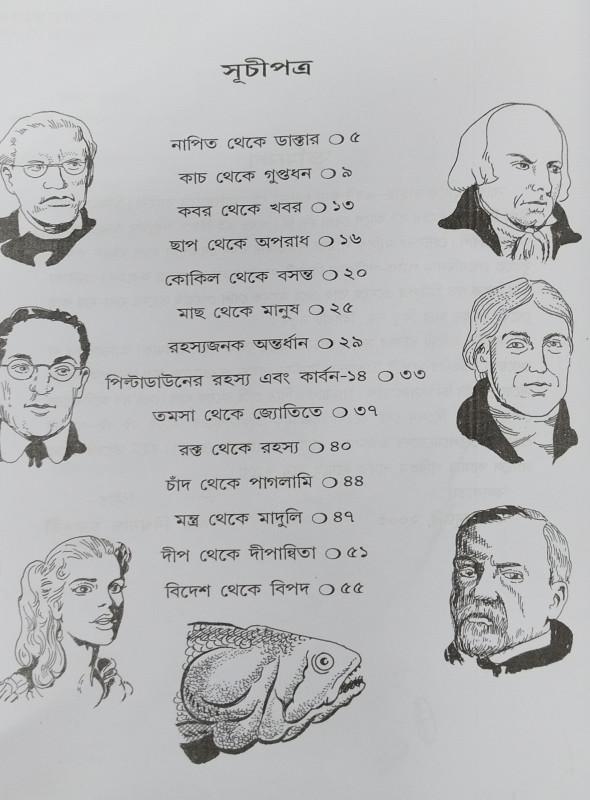 সূচীপত্র
নাপিত থেকে ডাক্তার ○ ৫
কাচ থেকে গুপ্তধন ○ ৯
কবর থেকে খবর ○ ১৩
ছাপ থেকে অপরাধ ○ ১৬
কোকিল থেকে বসন্ত ○ ২০
মাছ থেকে মানুষ ○ ২৫
রহস্যজনক অন্তর্ধান ○ ২৯
পিল্টাডাউনের রহস্য এবং কার্বন-১৪ ○ ৩৩
তমসা থেকে জ্যোতিতে ○ ৩৭
রক্ত থেকে রহস্য ○ ৪০
চাঁদ থেকে পাগলামি ○ ৪৪
মন্ত্র থেকে মাদুলি ○ ৪৭
দীপ থেকে দীপান্বিতা ○ ৫১
বিদেশ থেকে বিপদ ○ ৫৫